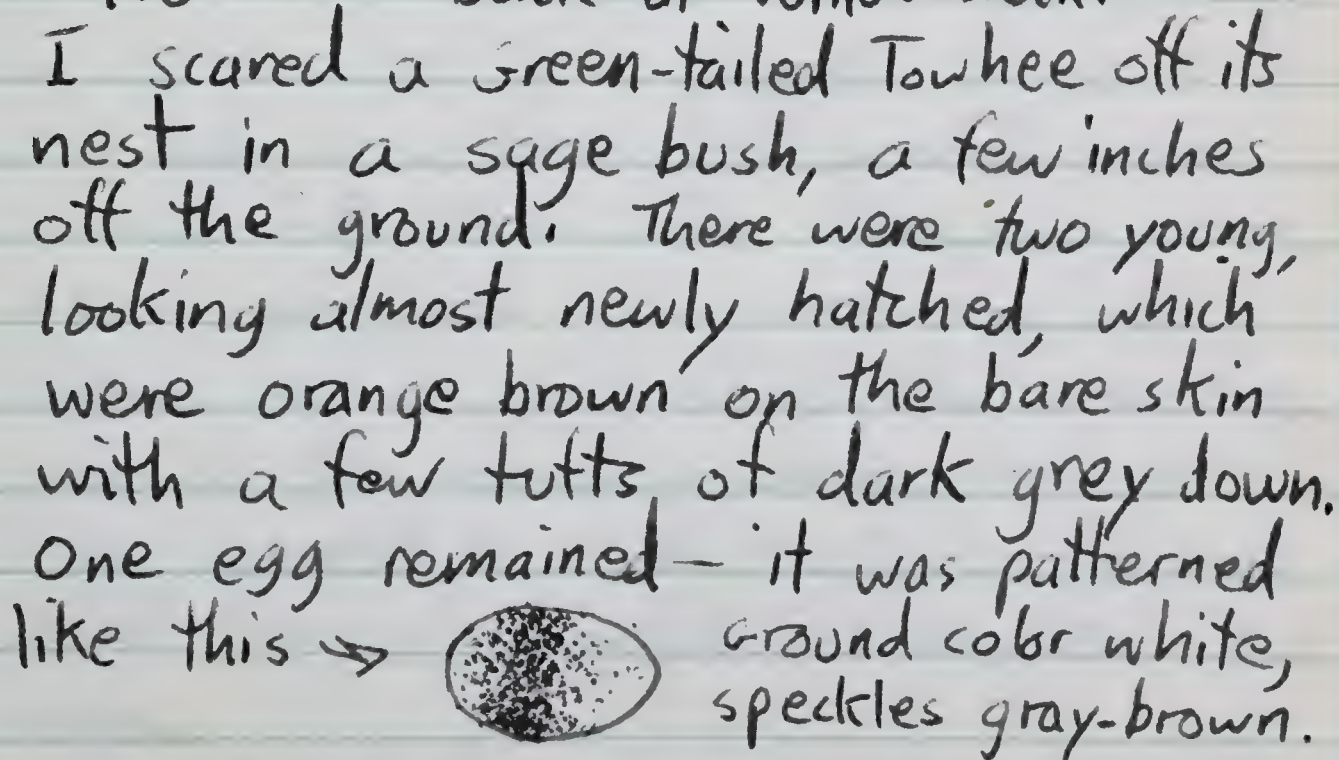 I scared a Green-tailed Towhee off its
nest in a sage bush, a few inches
off the ground. There were two young,
looking almost newly hatched, which
were orange brown on the bare skin
with a few tufts of dark grey down.
One egg remained — it was patterned
like this → Ground color white,
speckles gray-brown.